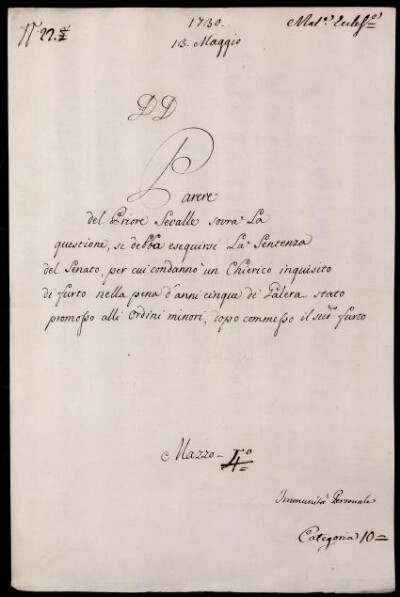 1730.
N.° 27.
Mat.e Eccles.e
13. Maggio
DD
Parere
del Priore Sevalle sovra La
questione, se debba eseguirsi La Sentenza
del Senato, per cui condannò un Chierico inquisito
di furto nella pena d'anni cinque di Galera stato
promosso alli Ordini minori, dopo commesso il sud.° furto
Mazzo - 4°
Immunità Personale
Categoria 10 =